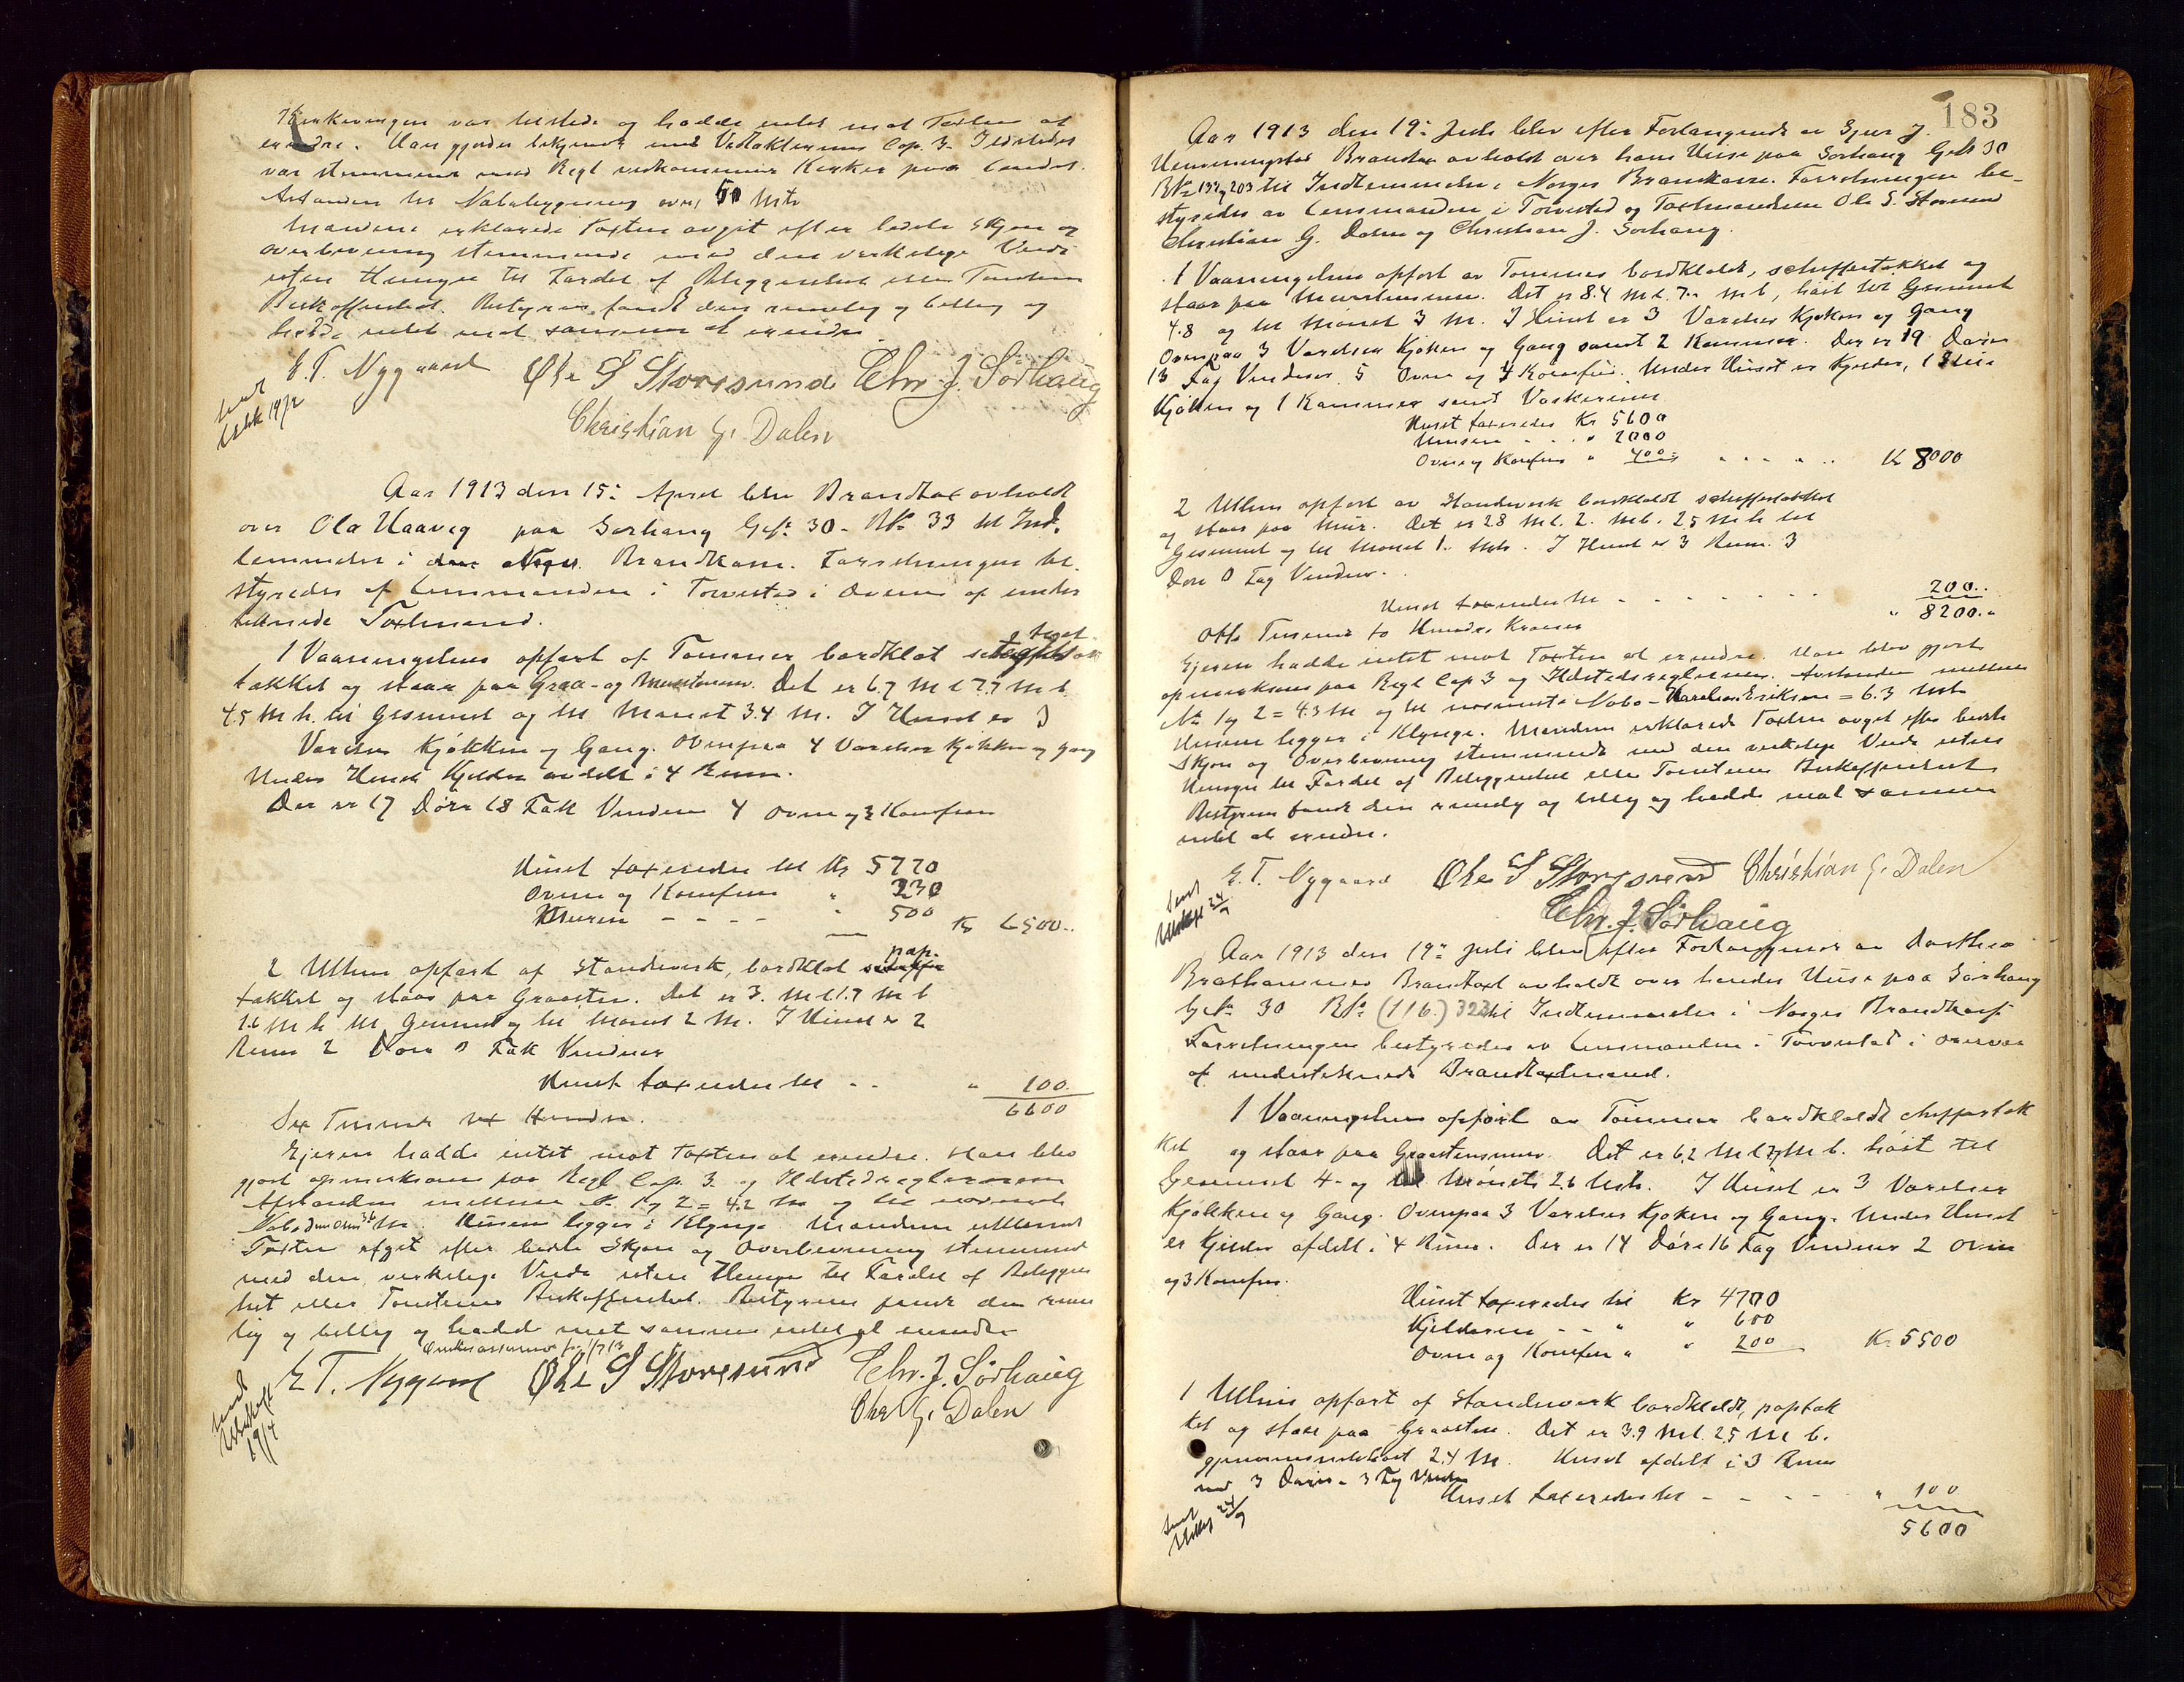 Kirkevergen var tilstede og hadde intet mot Taxten at
erindre. Han gjordes bekjendt med Vedtækternes Cap. 3. Ildstedet
var stemmende med Regl vedkommende Kirker paa Landet.
Avstanden til Nabobygning over 50 Mtr
Mændene erklærede Taxten avgit efter bedste Skjøn og
overbevisning stemmende med den virkelige Værdi
uten Hensyn til Fordel af Beliggenhet eller Tomtens
Beskaffenhet. Bestyreren fandt den rimelig og billig og
hadde intet mot samme at erindre
E. T. Nygaard Ole S Storesund Chr. J. Sörhaug
Christian G. Dalen
Aar 1913 den 15: April blev Brandtaxt avholdt
over Ola Haaveg paa Sørhaug G.No 30 - B.No 33 til Ind-
lemmelse i Norges Brandkasse. Forretningen be-
styredes af Lensmanden i Torvestad i Overvær af under
teknede Taxtmænd.
1 Vaaningshus opført af Tømmer bordklæt teglst.
tækket og staar paa Graa- og Murstensmur. Det er 6.7 M l 7.7 M b.
4.5 M h. til Gesimset og til Mønet 3.4 M. I Huset er 3
Værelser Kjøkken og Gang. Ovenpaa 4 Værelser Kjøkken og Gang
Under Huset Kjelder avdelt i 4 Rum.
Der er 17 Døre 18 Fak Vinduer 4 Ovne og 3 Komfurer
Huset taxeredes til Kr 5770
Ovne og Komfurer " 230
Muren - - - - " 500 Kr 6500..
2 Uthus opført af Standerverk, bordklæt pap-
tækket og staar paa Graasten. Det er 3. M l 1.7 M b
1.6 M h til Gesimset og til Mønet 2 M. I Huset er 2
Rum 2 Døre 0 Fak Vinduer
Huset taxeredes til - - " 100.
6600
Sex Tusind sex Hundre.
Ejeren hadde intet mot Taxten at erindre. Han blev
gjort opmerksom paa Regl Cap. 3 og Ildstedsreglerne
Afstanden mellem No 1 og 2 = 4.2 M og til nærmeste
Husene ligger i Klynge. Mændene erklæred
Taxten afgit efter bedste Skjøn og Overbevisning stemmende
med den virkelige Værdi uten Hensyn til Fordel af Beliggen
het eller Tomtens Beskaffenhet. Bestyreren fandt den rime
lig og billig og hadde mot samme intet at erindre
E T. Nygaard Ole S Storesund Chr. J. Sörhaug
Chr G. Dalen
183
Aar 1913 den 19: Juli blev efter Forlangende av Sjur J.
Hemmingstad Brandtaxt avholdt over hans Huse paa Sørhaug G.No 30
B.No 132 og 203 til Indlemmelse i Norges Brandkasse. Forretningen be-
styredes av Lensmanden i Torvestad og Taxtmændene Ole S. Storesund
Christian G. Dalen og Christian J. Sørhaug.
1 Vaaningshus opført av Tømmer bordklædt, skiffertækket og
staar paa Murstensmur. Det er 8.4 M l. 7.. M b, høit til Gesimset
4.8 og til Mønet 3 M. I Huset er 3 Værelser Kjøken og Gang
Ovenpaa 3 Værelser Kjøken og Gang samt 2 Kammer. Der er 19 Døre
13 Fag Vinduer 5 Ovne og 4 Komfur. Under Huset er Kjelder, 1 Stue
Kjøkken og 1 Kammer samt Vaskerum
Huset taxeredes Kr 5600
Muren - - " 2000
Ovne og Komfur " 400 " " " " Kr 8000
2 Uthus opført av Standerverk bordklædt skiffertækket
og staar paa Mur. Det er 2.8 M l. 2. M b. 2.5 M h til
Gesimset og til Mønet 1.. Mtr. I Huset er 3 Rum. 3
Døre 0 Fag Vinduer.
Huset taxeredes til - - - - - - 200..
" 8200.."
Otte Tusind to Hundre Kroner
Ejeren hadde intet mot Taxten at erindre. Han blev gjort
opmerksom paa Regl Cap 3 og Ildstedsreglerne. Avstanden mellem
No 1 og 2 = 4.3 M og til nærmeste Nabo - Eriksen = 6.3 Mtr
Husene ligger i Klynge. Mændene erklærede Taxten avgit efter bedste
Skjøn og Overbevisning stemmende med den virkelige Værdi uten
Hensyn til Fordel af Beliggenhet eller Tomtens Beskaffenhet
Bestyreren fandt den rimelig og billig og hadde mot samme
intet at erindre.
E. T. Nygaard Ole S Storesund Christian G. Dalen
Chr. J. Sörhaug
Aar 1913 den 19: Juli blev efter Forlangende av Dorthea
Brathammer Brandtaxt avholdt over hendes Huse paa Sørhaug
G.No 30 B.No (116.) 323 til Indlemmelse i Norges Brandkasse
Forretningen bestyredes av Lensmanden i Torvestad i Overvær
af undertegnede Brandtaxtmænd.
1 Vaaningshus opført av Tømmer bordklædt skiffertæk
ket og staar paa Graastensmur. Det er 6.2 M l 7 M b. høit til
Gesimset 4- og til Mønet 2.6 Mtr. I Huset er 3 Værelser
Kjøkken og Gang. Ovenpaa 3 Værelser Kjøken og Gang. Under Huset
er Kjelder afdelt i 4 Rum. Der er 14 Døre 16 Fag Vinduer 2 Ovne
og 3 Komfur.
Huset taxeredes til Kr 4700
Kjelderen - - " " 600
Ovne og Komfur " " 200 Kr. 5500
1 Uthus opført af Standerverk bordklædt, paptæk
ket og staar paa Graasten. Det er 3.9 M l. 2.5 M b.
gjennemsnitshøit 2.4 M. Huset afdelt i 3 Rum
med 3 Døre - 3 Fag Vinduer
Huset taxeredes til - - - - " 100
5600